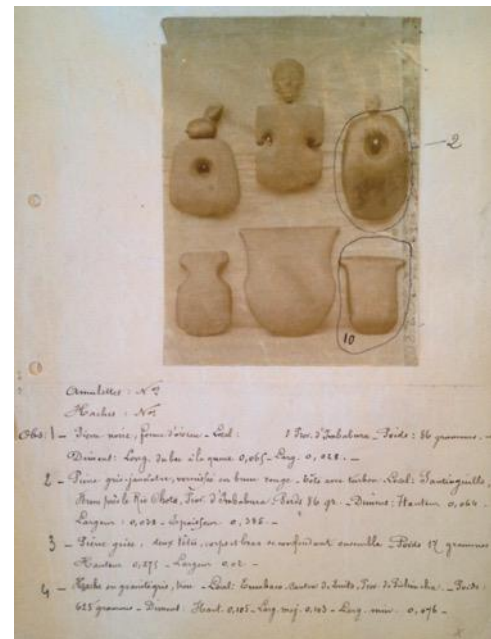 2
10
Amulettes : Nos
Haches : Nos
Obs: 1 – Pierre noire, forme d'oiseau – Local: Prov. d'Imbabura – Poids: 86 grammes. –
Diment: Long. du bec à la queue 0,065 – Larg. 0,028. –
2 – Pierre gris-jaunâtre, vernissée en brun rouge – Tête avec turban – Local:
près le Rio Chota, Prov. d'Imbabura – Poids 86 gr. – Diment: Hauteur 0,064 –
Largeur : 0,038 – Epaisseur 0,385 –
3 – Pierre grise, tête, corps et bras se confondant ensemble – Poids 17 grammes
Hauteur 0,275 – Largeur 0,02 –
4 – Hache en – Local: Prov. de – Poids:
625 grammes – Diment: Haut. 0,105 – Larg. maj. 0,103 – Larg. min. 0,076 –